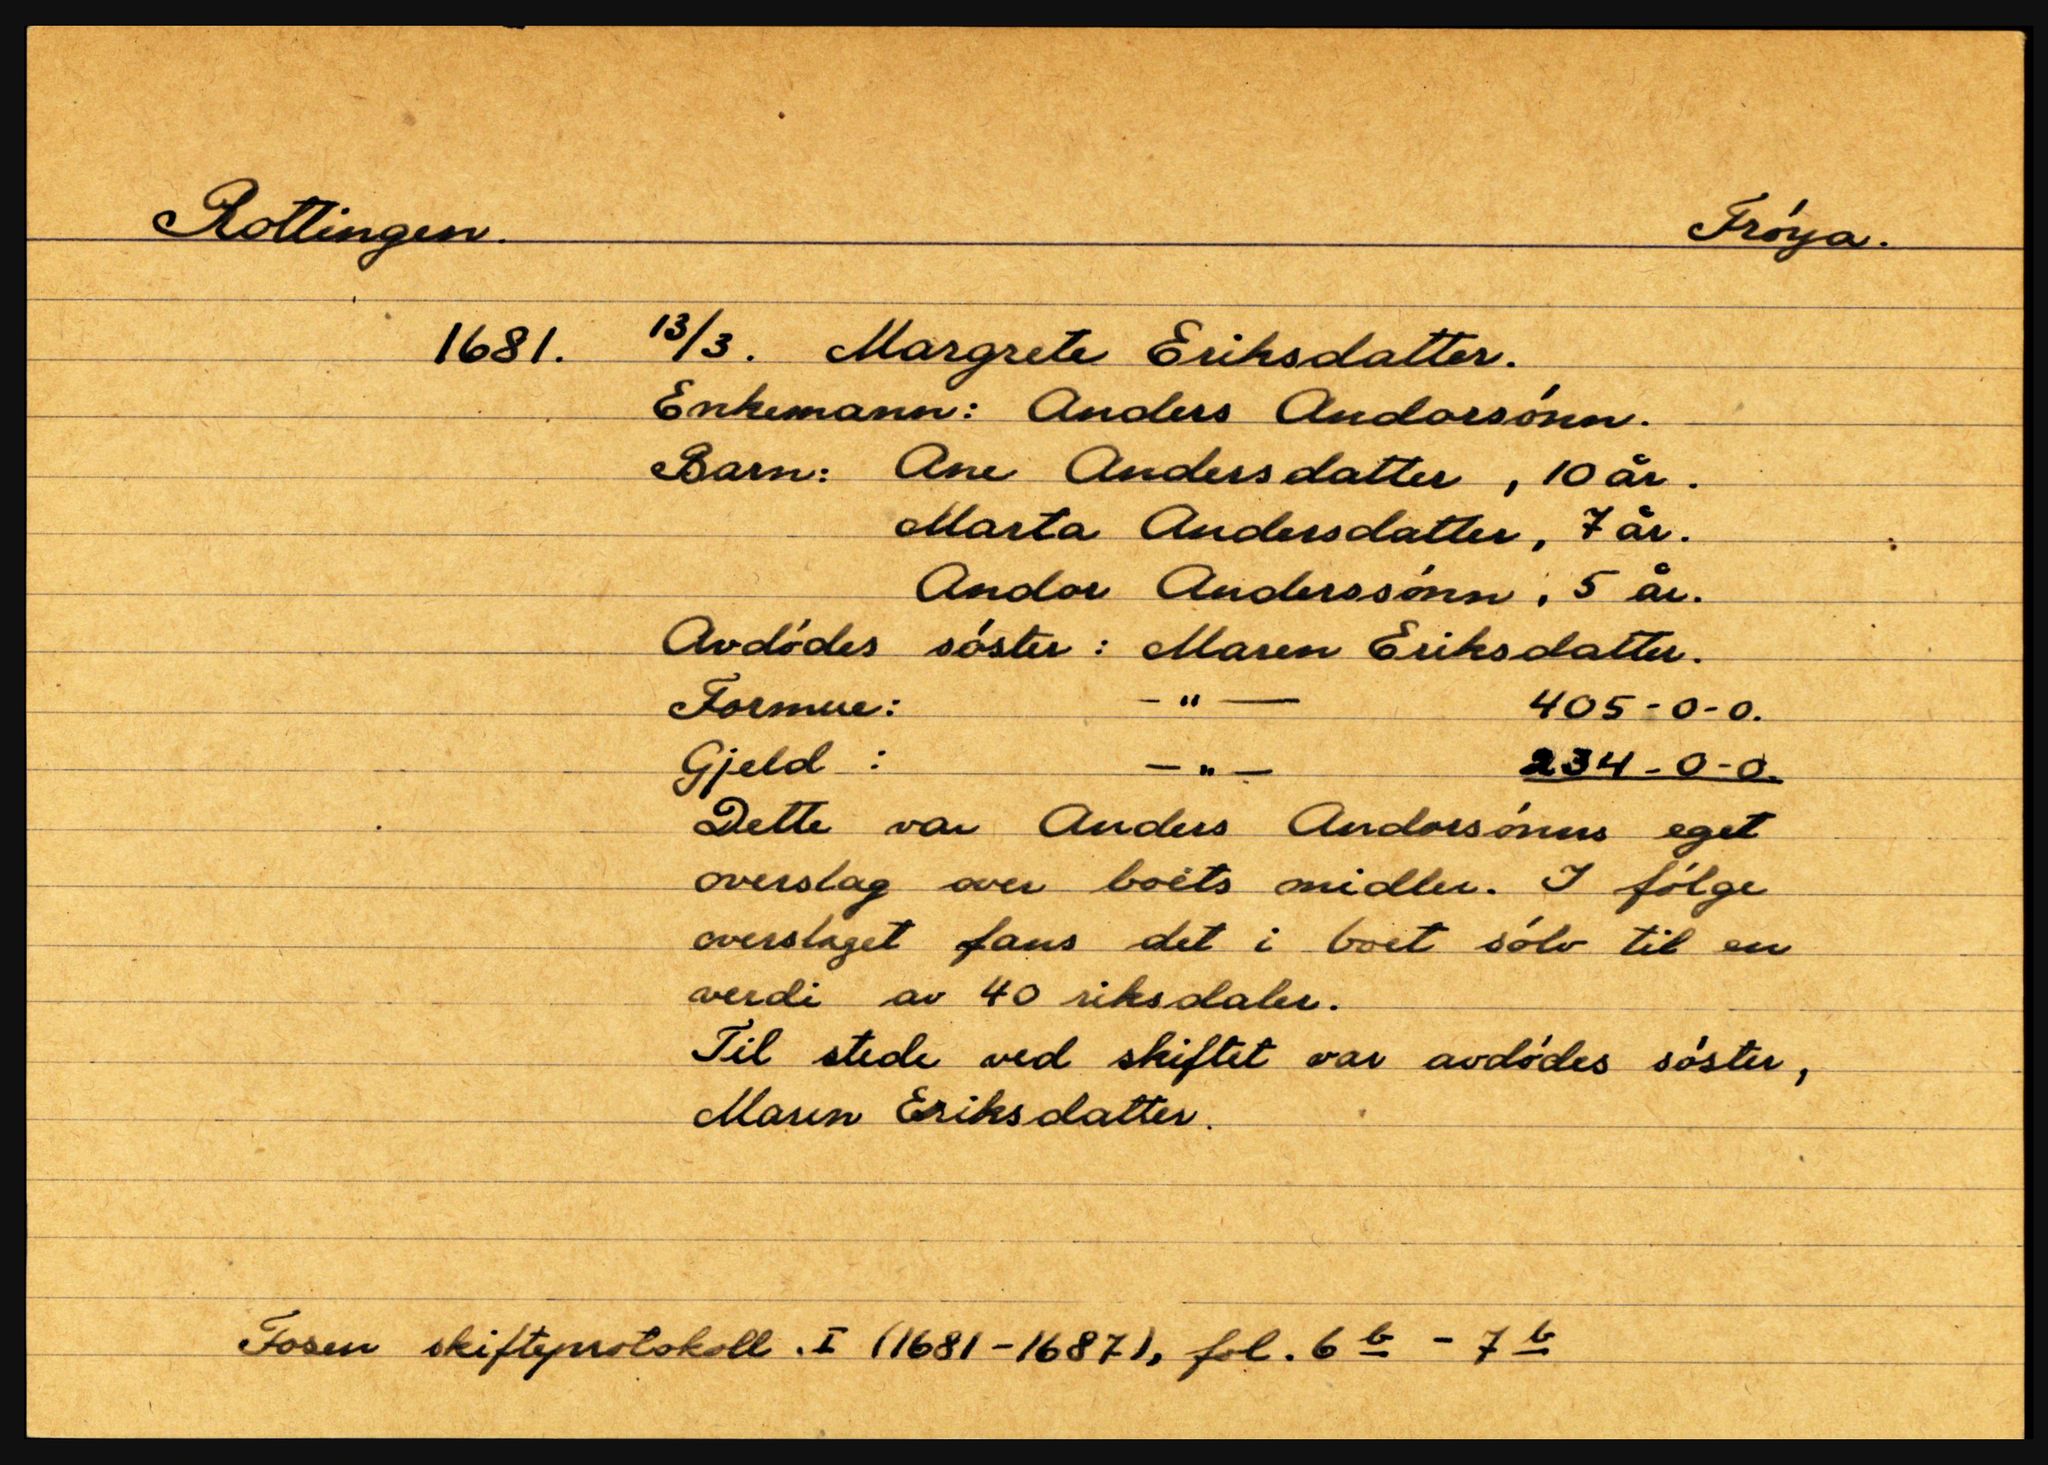 Rottingen. Fróya.
1681. 13/3. Margrete Eriksdatter.
Enkemann: Anders Andorsónn.
Barn: Ane Andersdatter, 10 år.
Marta Andersdatter, 7 år.
Andor Anderssónn, 5 år.
Avdódes sóster: Maren Eriksdatter.
Formue: - " — 405-0-0.
Gjeld : - " - 234-0-0.
Dette var Anders Andorsónns eget
overslag over boéts midler. I fólge
overslaget fans det i boet sólv til en
verdi av 40 riksdaler.
Til stede ved skiftet var avdódes sóster,
Maren Eriksdatter.
Fosen skifteprotokoll. I (1681-1687), fol. 6 b - 7 b